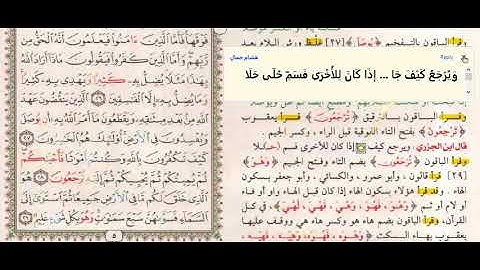 وقرأ الباقون بالتفخيم ﴿يُوصَلَ﴾ [٢٧] غلظ ورش اللام بعد
هشام جمال
وَيُرْجَعُ كَيْفَ جَا ... إِذَا كَانَ لِلْأُخْرَى فَسَمِّ حُلًى حَلَا
وقرأ الباقون بالترقيق ﴿تُرْجَعُونَ﴾ قرأ يعقوب
﴿تَرْجِعُونَ﴾ بفتح التاء الفوقية قبل الراء، وكسر الجيم.
قال ابن الجزري: ويرجع كيف إذا كان للأخرى قسم
وقرأ الباقون ﴿تُرْجَعُونَ﴾ بضم التاء وفتح الجيم ﴿وَهُوَ﴾
[٢٩] قرأ قالون، وأبو عمرو، والكسائي، وأبو جعفر بسكون
الهاء، وقد قرأ هؤلاء بسكون الهاء إذا كان قبل الهاء واو أو فاء
أو لام نحو ﴿وَهْوَ، وَهْيَ، فَهْوَ، فَهْيَ، لَهْوَ، لَهْيَ﴾ في كل
القرآن، وقرأ الباقون بضم هاء هو وكسر هاء هي ووقف عليها
يعقوب بهاء السكت ﴿وَهُوَهْ، وَهِيَهْ، فَهُوَهْ، فَهِيَهْ،
فَوْقَهَا فَأَمَّا الَّذِينَ ءَامَنُوا فَيَعْلَمُونَ أَنَّهُ الْحَقُّ مِن
رَّبِّهِمْ وَأَمَّا الَّذِينَ كَفَرُوا فَيَقُولُونَ مَاذَا أَرَادَ اللَّهُ
بِهَٰذَا مَثَلًا يُضِلُّ بِهِ كَثِيرًا وَيَهْدِي بِهِ كَثِيرًا
وَمَا يُضِلُّ بِهِ إِلَّا الْفَاسِقِينَ ٢٦ الَّذِينَ يَنقُضُونَ عَهْدَ
فِي الْأَرْضِ أُولَٰئِكَ هُمُ الْخَاسِرُونَ ٢٧
كَيْفَ تَكْفُرُونَ بِاللَّهِ وَكُنتُمْ أَمْوَاتًا فَأَحْيَاكُمْ
ثُمَّ يُمِيتُكُمْ ثُمَّ يُحْيِيكُمْ ثُمَّ إِلَيْهِ تُرْجَعُونَ ٢٨
هُوَ الَّذِي خَلَقَ لَكُم مَّا فِي الْأَرْضِ جَمِيعًا ثُمَّ اسْتَوَىٰ إِلَى
السَّمَاءِ فَسَوَّاهُنَّ سَبْعَ سَمَاوَاتٍ وَهُوَ بِكُلِّ شَيْءٍ عَلِيمٌ ٢٩
٥